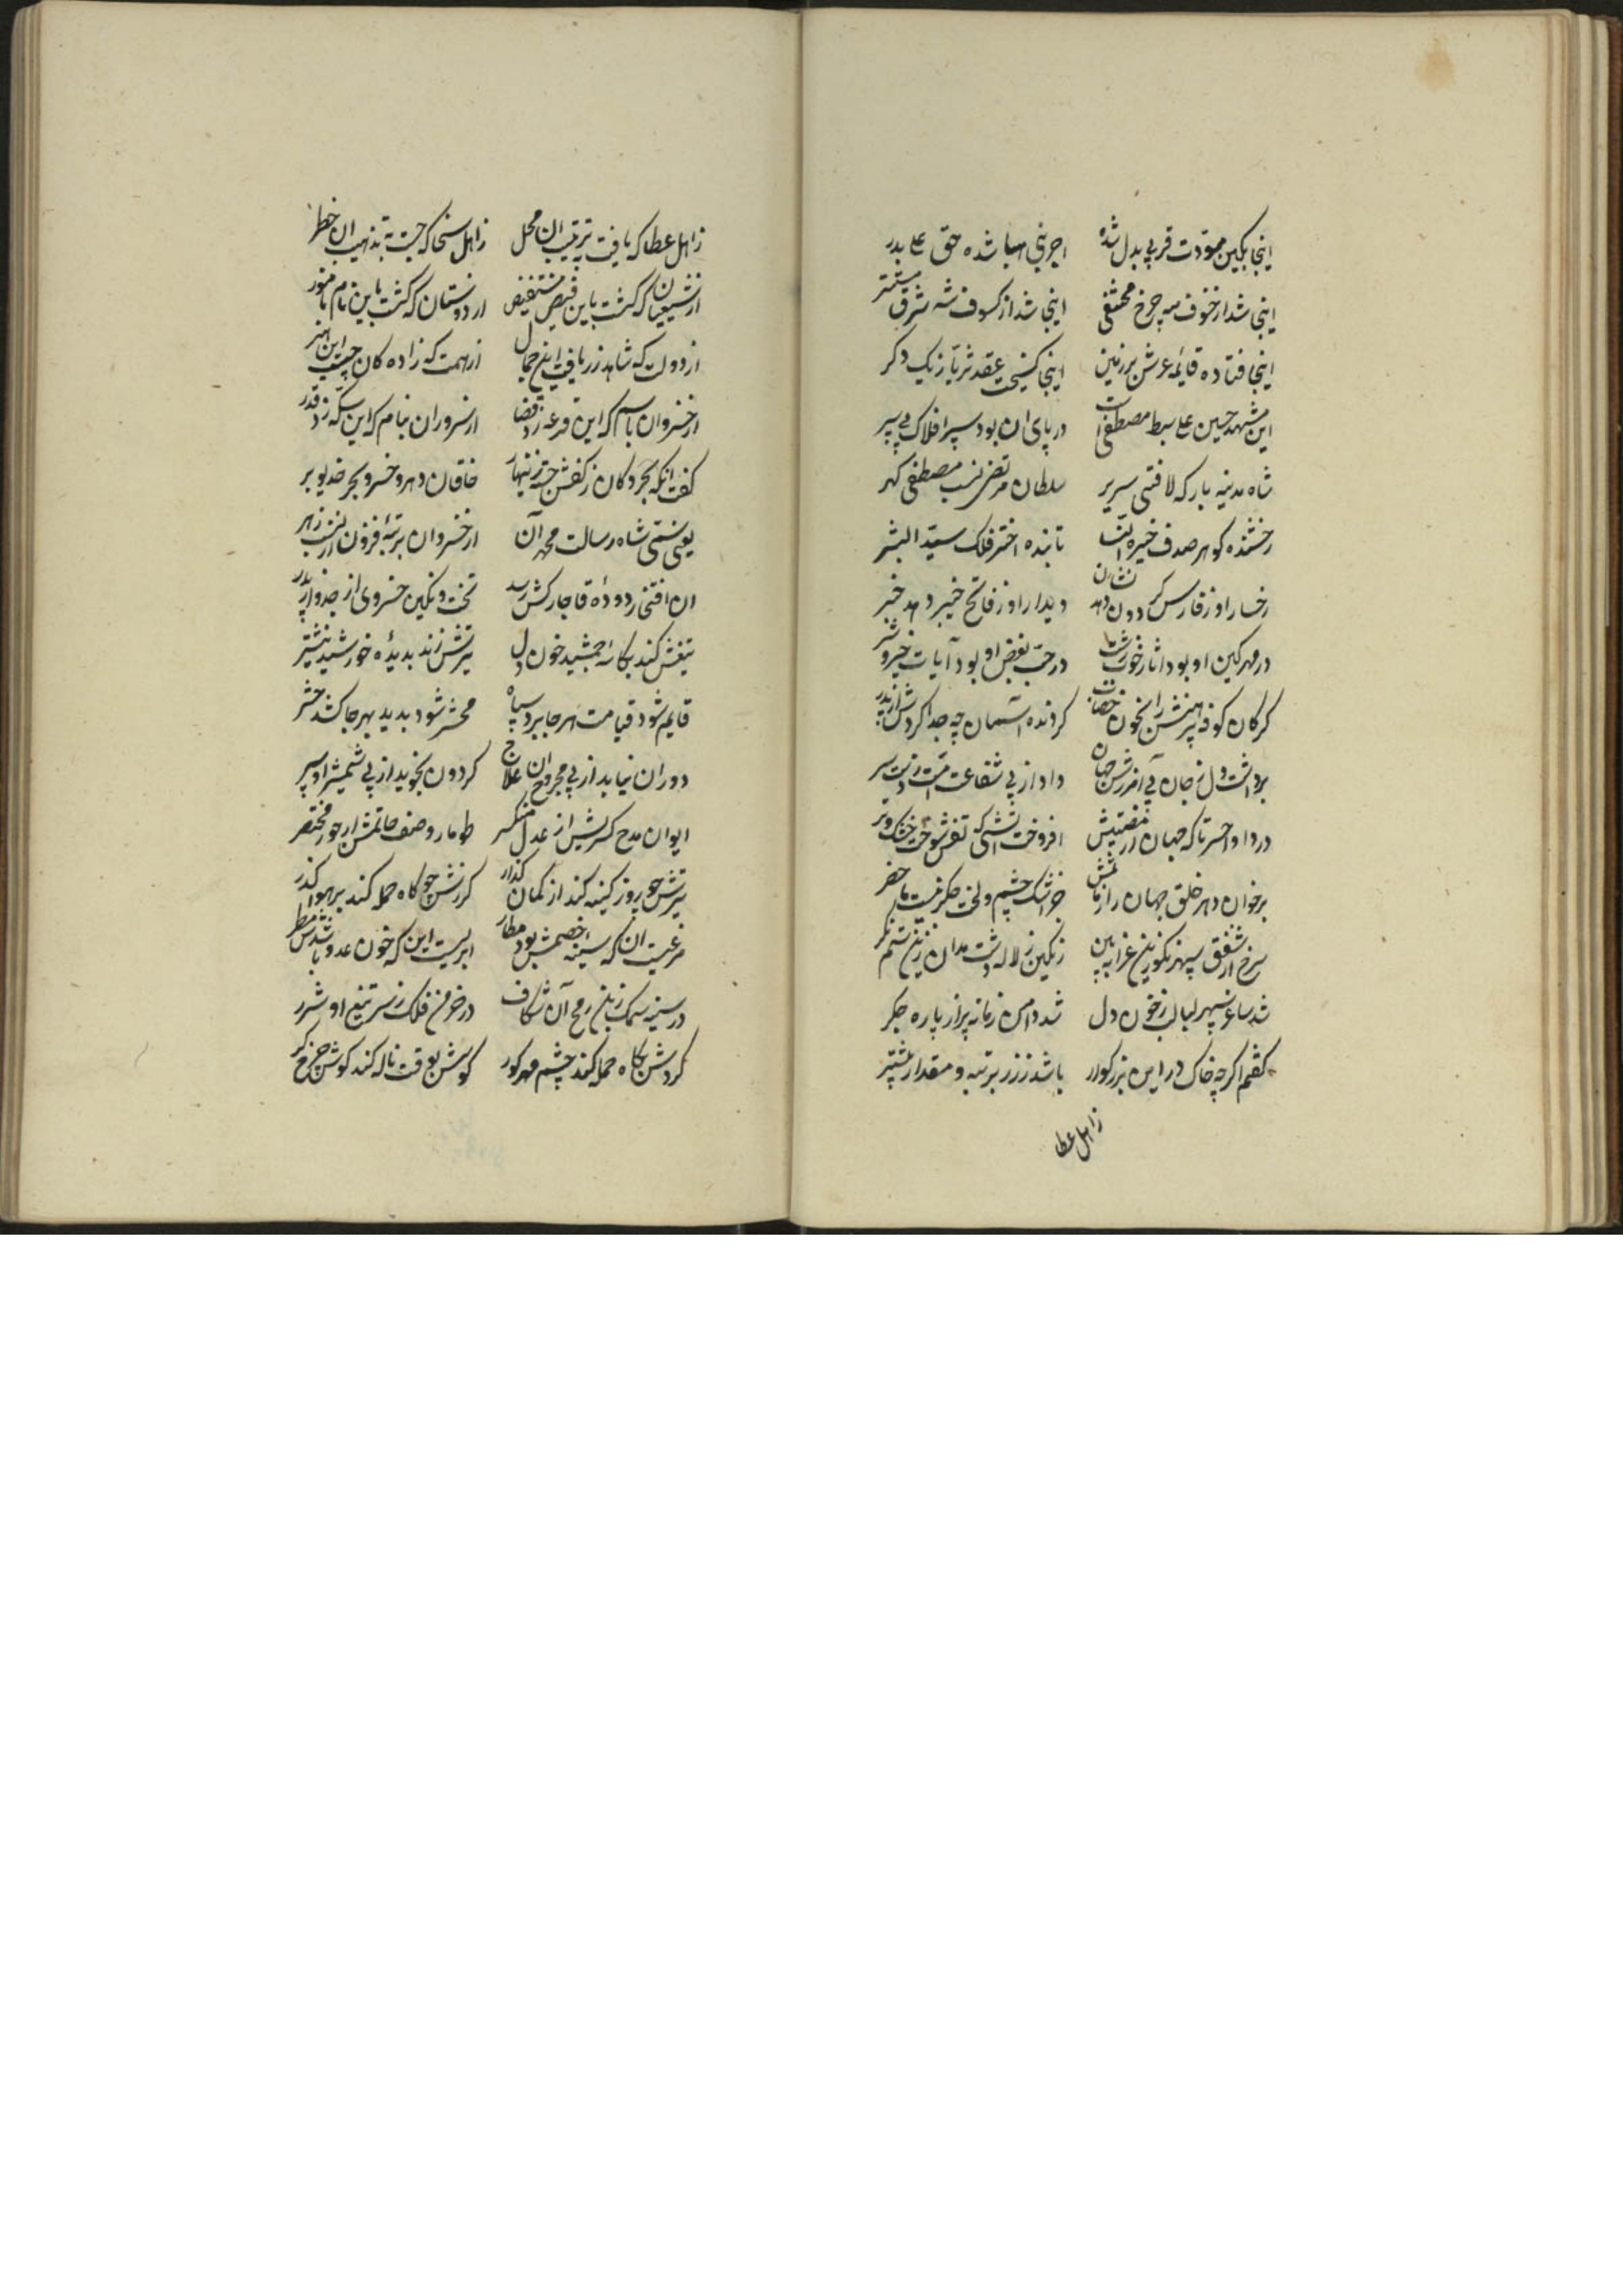 اینجا بکین مودت قربی بدل شده اجر نبی هبا شده حق علی بدر
اینجا شد از خسوف مه چرخ مختفی اینجا شد از کسوف شه شرق مستتر
اینجا فتاده قایمهٔ عرش بر زمین اینجا کسیخت عقد ثریا ز یک دکر
این مشهد حسین علی سبط مصطفی است در پای ان بود سر افلاک پی سپر
شاه مدینه بارکه لافتی سریر سلطان مرتضی نسب مصطفی کهر
رخشنده کوهر صدف خیرة النسا تابنده اختر فلک سید البشر
رخسار او ز فارس کردون دهد نشان دیدار او ز فاتح خیبر دهد خبر
در مهر کین او بود اثار خوب زشت در حب بغض او بود آیات خیر و شر
کرکان کوفه پیرهنش را بخون خضاب کردند آسمان چه جدا کردش از پدر
برداشت دل ز جان پی آمرزش جهان داد از پی شفاعت امت ز دست سر
دردا و احسرتا که جهان از مصیبتش افروخت آتشی که تفش سوخت خشک و تر
بر خوان دهر خلق جهان را ز ماتمش جز اشک چشم و لخت جکر نیست ماحضر
سرخ از شفق سپهر نکو زین عزا ببین رنکین ز لاله دشت مدان زین ستم نکر
شد ساغر سپهر لبالب ز خون دل شد دامن زمانه پر از پاره جکر
کفتم اکرچه خاک در این بزرکوار باشد ز زر برتبه و مقدار بیشتر
ز اهل عطا
ز اهل عطا که یافت بترتیب ان محل ز اهل سخا که جست بتذهیب ان خطر
از شیعیان که کشت باین فیض مستفیض از دوستان که کشت باین نام نامور
از دولت که شاهد زر یافت این جمال از همت که زاده کان جست این هنر
از خسروان باسم که این قرعه زد قضا از سروران بنام که این سکه زد قدر
کفت انکه بحر و کان ز کفش جسته زینهار خاقان دهر و خسرو بحر خدیو بر
یعنی ستمی شاه رسالت محمد آن از خسروان برتبه فزون از نسب زبر
ان افتی ز دودهٔ قاجار کش رسد تخت و نکین خسروی از جد و از پدر
تیغش کند بکاسهٔ جمشید خون دل تیرش زند بدیدهٔ خورشید نیشتر
قایم شود قیامت هر جا برد سپاه محشر شود پدید بهر جا کشد حشر
دوران نیابد از پی مجروح ان علاج کردون نجوید از پی شمشیر او سپر
ایوان مدح کسریش از عدل منکسر طومار وصف حاتمش از جود مختصر
تیرش چو روز کینه کند از کمان کذار کرزش چو کاه حمله کند بر هوا کذر
مرغیست ان که سینه خصمش بود مطار ابریست این که خون عدو باشدش مطر
در سینه سمک ز بن رمح آن شکاف در خرمن فلک ز سر تیغ او شرر
کردش بکاه حمله کند چشم مهر کور کوسش بوقت ناله کند کوش چرخ کر